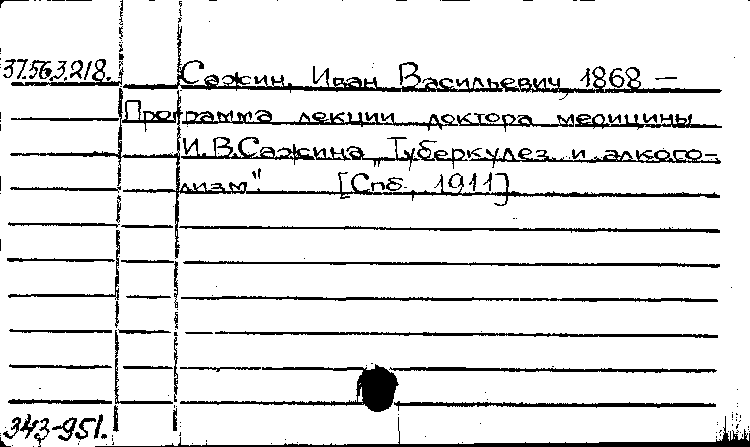 37.56.3.218. Сажин, Иван Васильевич, 1868 —
Программа лекции доктора медицины
И.В.Сажина „Туберкулез и алкого-
лизм". [Спб., 1911]
343-951.